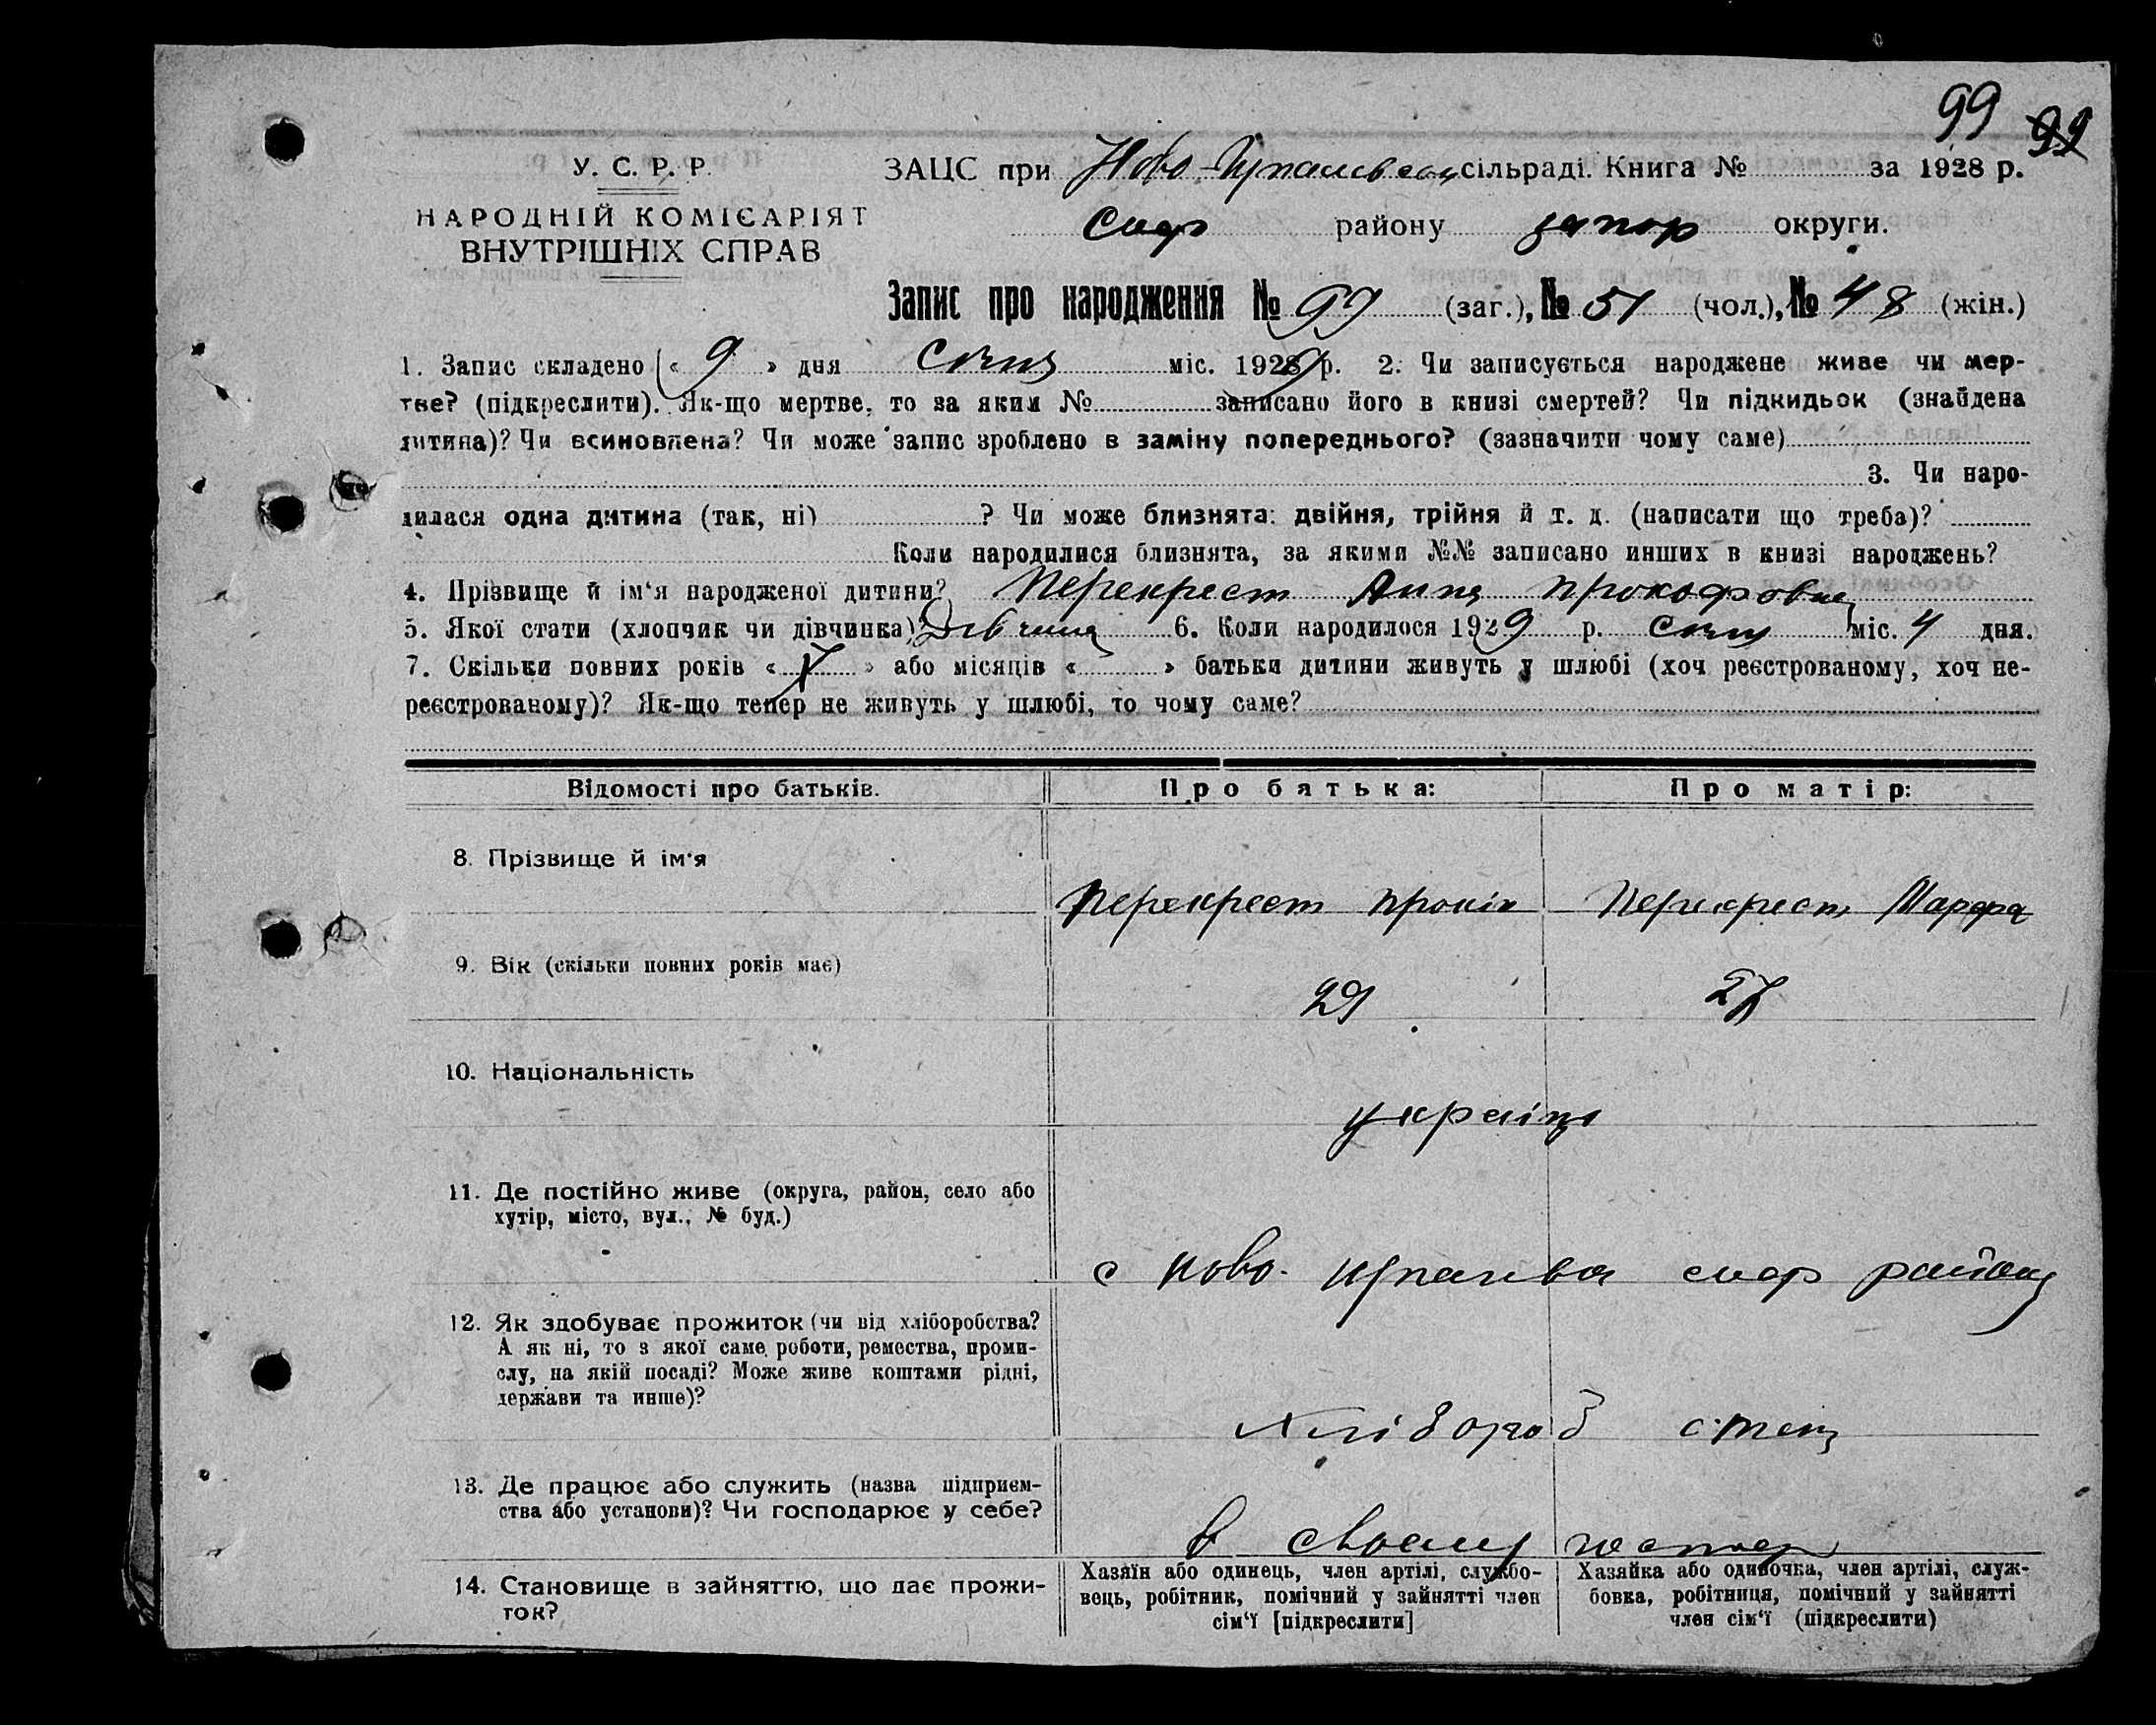 99 99
У. С. Р. Р.
НАРОДНІЙ КОМІСАРІЯТ
ВНУТРІШНІХ СПРАВ
ЗАЦС при Ново- сільраді. Книга № за 1928 р.
району запор округи.
Запис про народження № 99 (заг.), № 51 (чол.), № 48 (жін.)
1. Запис складено « 9 » дня Січня міс. 1929 р. 2. Чи записується народжене живе чи мер-
тве? (підкреслити). Як-що мертве, то за яким № записано його в книзі смертей? Чи підкидьок (знайдена
дитина)? Чи всиновлена? Чи може запис зроблено в заміну попереднього? (зазначити чому саме)
3. Чи наро-
дилася одна дитина (так, ні) ? Чи може близнята: двійня, трійня й т. д. (написати що треба)?
Коли народилися близнята, за якими №№ записано инших в книзі народжень?
4. Прізвище й ім‘я народженої дитини? Перекрест Анна Прокофовна
5. Якої стати (хлопчик чи дівчинка)? Дівчина 6. Коли народилося 1929 р. Січня міс. 4 дня.
7. Скільки повних років « 7 » або місяців « » батьки дитини живуть у шлюбі (хоч реєстрованому, хоч не-
реєстрованому)? Як-що тепер не живуть у шлюбі, то чому саме?
Відомості про батьків. Про батька: Про матір:
8. Прізвище й ім‘я
Перекрест Прокіп Перекрест Марфа
9. Вік (скільки повних років має)
29 27
10. Національність
україн
11. Де постійно живе (округа, район, село або
хутір, місто, вул., № буд.)
с Ново- району
12. Як здобуває прожиток (чи від хліборобства?
А як ні, то з якої саме роботи, ремества, проми-
слу, на якій посаді? Може живе коштами рідні,
держави та инше)?
хлібороб ством
13. Де працює або служить (назва підприєм-
ства або установи)? Чи господарює у себе?
в своему господ
14. Становище в зайняттю, що дає прожи-
ток?
Хазяїн або одинець, член артілі, службо-
вець, робітник, помічний у зайнятті член
сім‘ї [підкреслити]
Хазяйка або одиночка, член артілі, служ-
бовка, робітниця, помічний у зайнятті
член сім‘ї (підкреслити)